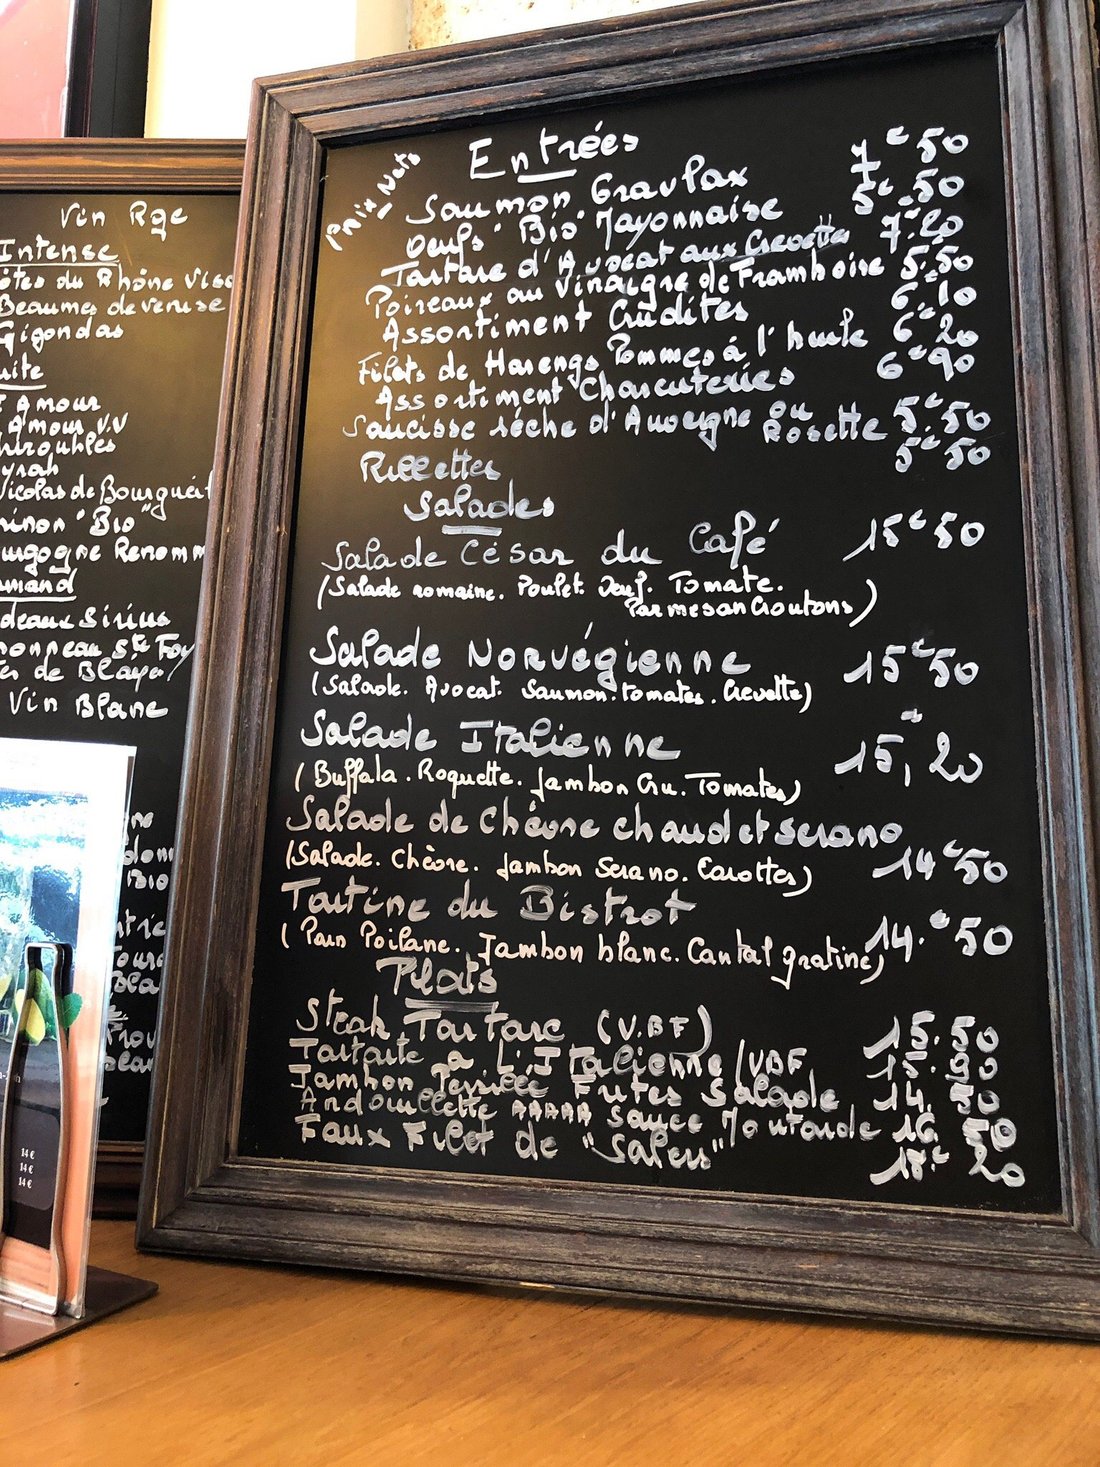 Prix Nets
Entrées
Saumon Gravlax 7€50
Oeufs "Bio" Mayonnaise 5€50
Tartare d'Avocat aux Crevettes 7€20
Poireaux au Vinaigre de Framboise 5€50
Assortiment Crudités 6€10
Filets de Harengs Pommes à l'huile 6€20
Assortiment Charcuteries 6€90
Saucisse séche d'Auvergne ou Rosette 5€50
Rillettes 5€50
Salades
Salade César du Café 15€50
(Salade romaine. Poulet. Oeuf. Tomate.
Parmesan Croutons)
Salade Norvégienne 15€50
(Salade. Avocat. Saumon. tomates. Crevette)
Salade Italienne 15,20
(Buffala. Roquette. Jambon Cru. Tomates)
Salade de Chèvre chaud et serano
(Salade. Chèvre. Jambon Serano. Carottes) 14€50
Tartine du Bistrot
(Pain Poilane. Jambon blanc. Cantal gratiné) 14.€50
Plats
Steak Tartare (V.BF) 15.50
Tartare a L'Italienne /VBF 15.90
Jambon Frites Salade 14.50
Andouillette AAAAA Sauce Moutarde 16.50
Faux Filet de "Salers" 18.€20
Vin Rge
Intense
ôtes du Rhône Viso
Beaumes de venise
Gigondas
uite
Amour
Amour V.V
yrah
Nicolas de Bourgueil
hinon "Bio"
urgogne Renomm
mand
deaux Sirius
onneau Ste Foy
es de Blaye
Vin Blanc
14 €
14 €
14 €